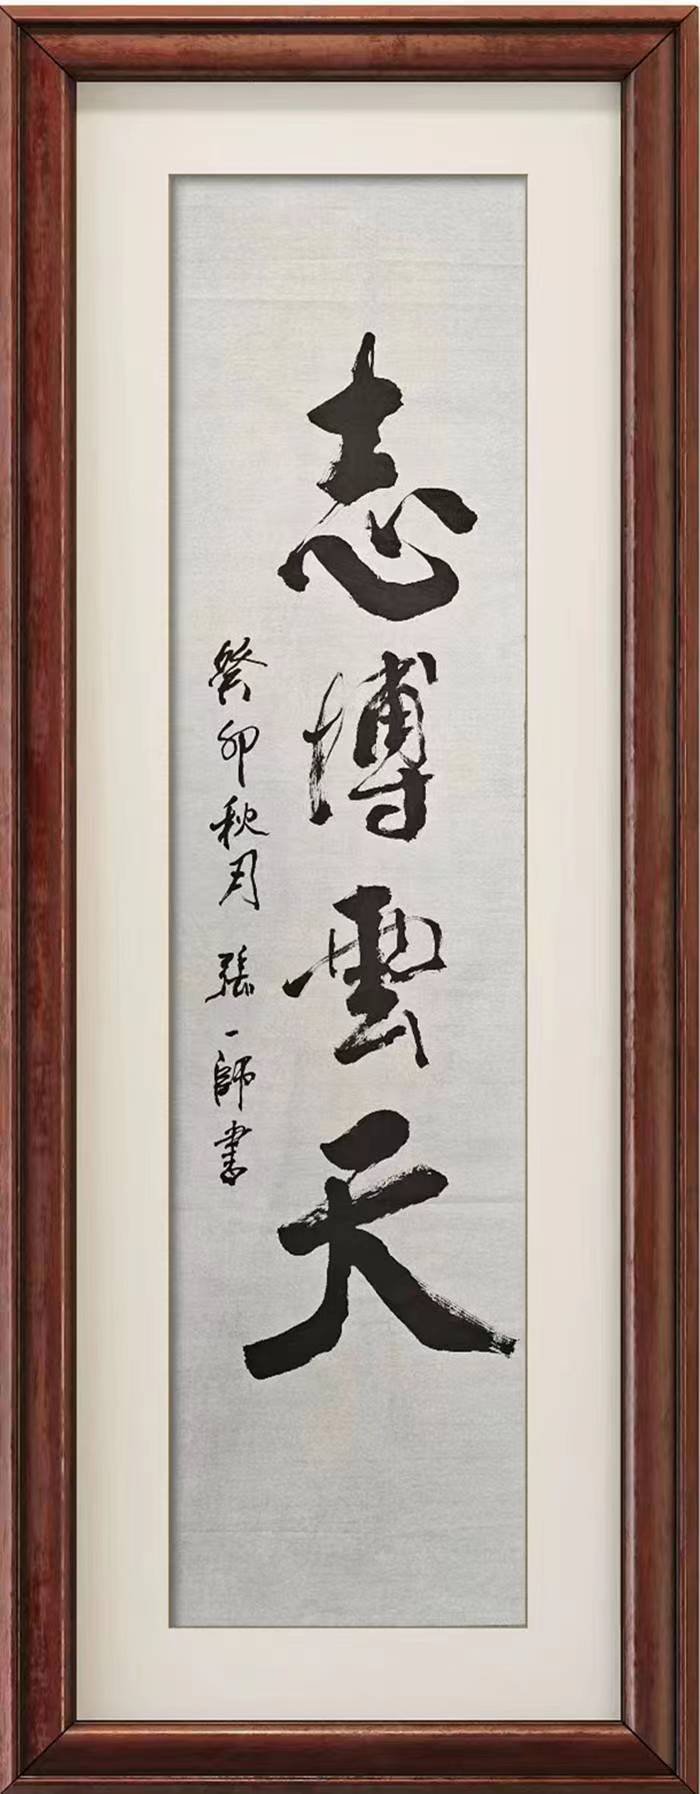 志博雲天
癸卯秋月 張一師書